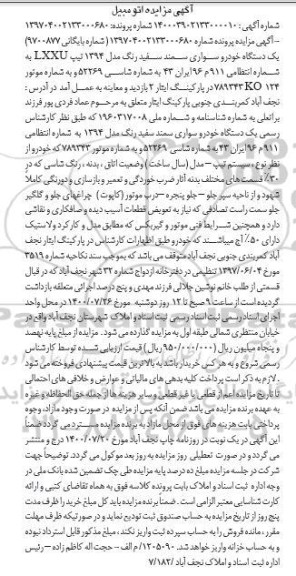 آگهی مزایده اتومبیل
شماره آگهی: ۱۴۰۰۰۳۹۰۲۱۳۳۰۰۰۰۱۰ شماره پرونده: ۱۳۹۷۰۴۰۰۲۱۳۳۰۰۰۶۸۰
- آگهی مزایده پرونده شماره ۱۳۹۷۰۴۰۰۲۱۳۳۰۰۰۶۸۰ (شماره بایگانی ۹۷۰۰۸۷۷)
یک دستگاه خودرو سواری سمند سفید رنگ مدل ۱۳۹۴ تیپ LXXU به
شماره انتظامی ۹۱۱م۹۶ ایران ۴۳ به شماره شاسی ۵۲۲۶۹ و به شماره موتور
۱۲۴KO۷۸۹۳۴۳ در پارکینگ ایثار ۲ بازدید و معاینه به عمل آمد در آدرس:
نجف آباد کمربندی جنوبی پارکینگ ایثار متعلق به مرحوم عماد فردی پور فرزند
براتعلی به شماره شناسنامه و شماره ملی ۱۹۶۰۳۱۷۰۰۸ که طبق نظر کارشناس
رسمی یک دستگاه خودرو سواری سمند سفید رنگ مدل ۱۳۹۴ به شماره انتظامی
۹۱۱م۹۶ ایران ۴۳ به شماره شاسی ۵۲۲۶۹ و به شماره موتور ۷۸۹۳۴۳ که خودرو از
نظر نوع، سیستم تیپ - مدل (سال ساخت) وضعیت اتاق، بدنه، رنگ شاسی که در
۳۰٪ قسمت های مختلف بدنه آثار ضرب خوردگی و تعمیر و بازسازی و دورنگی کاملا
شهود و از ناحیه سپر جلو - جلو پنجره - درب موتور (کاپوت) چراغهای جلو و گلگیر
جلو سمت راست تصادفی که نیاز به تعویض قطعات آسیب دیده و صافکاری و نقاشی
دارد و همچنین شرایط فنی موتور و گیربکس که مطابق مدل و کارکرد و لاستیک
دارای ۵۰٪ آج میباشند که خودرو طبق اظهارات کارشناس در پارکینگ ایثار نجف
آباد کمربندی جنوبی نجف آباد متوقف می باشد که بموجب سند نکاحیه شماره ۳۵۱۹
مورخ ۱۳۹۷/۰۶/۰۴ تنظیمی در دفترخانه ازدواج شماره ۳۲ شهر نجف آباد که در قبال
قسمتی از طلب خانم نوشین جلالی فرزند مهدی و پنج درصد اجرائی متعلقه بازداشت
گردیده است از ساعت ۹ صبح تا ۱۲ روز دوشنبه مورخ ۱۴۰۰/۰۷/۲۶ در محل واحد
اجرای اسناد رسمی ثبت اسناد رسمی ثبت اسناد و املاک شهرستان نجف آباد واقع در
خیابان منتظری شمالی طبقه اول به مزایده گذارده می شود. مزایده از مبلغ پایه نهصد
و پنجاه میلیون ریال (۹۵۰/۰۰۰/۰۰۰ ریال) قیمت ارزیابی شده توسط کارشناس
رسمی شروع و به هر کس خریدار باشد به بالاترین قیمت پیشنهادی فروخته می شود
. لازم به ذکر است پرداخت کلیه بدهی های مالیاتی و عوارض و خلافی های احتمالی
تا تاریخ مزایده اعم از قطعی یا غیر قطعی و سایر هزینه ها از جمله حق الحفاظه و غیره
به عهده برنده مزایده می باشد ضمن آنکه پس از مزایده در صورت وجود مازاد، وجوه
پرداختی بابت هزینه های فوق از محل مازاد به برنده مزایده مسترد می گردد ضمناً
این آگهی در یک نوبت در روزنامه چاپ نجف آباد مورخ ۱۴۰۰/۰۷/۲۰ درج و منتشر
می گردد و در صورت تعطیلی روز مزایده به روز بعد موکول می گردد. توضیحاً جهت
شرکت در جلسه مزایده مبلغ ده درصد پایه مزایده طی چک تضمین شده بانک ملی در
وجه اداره ثبت اسناد و املاک بابت پرونده کلاسه فوق به همراه تقاضای کتبی و ارائه
کارت شناسایی معتبر الزامی است. ضمناً برنده مزایده باید کل مبلغ خرید را ظرف مدت
پنج روز از تاریخ مزایده به حساب صندوق ثبت تودیع نماید و در صورتیکه ظرف مهلت
مقرر، مانده فروش را به حساب سپرده ثبت واریز نکند، مبلغ مذکور قابل استرداد نبوده
و به حساب خزانه واریز خواهد شد. ۱۲۰۵۰۹۰/م الف - حجت اله کاظم زاده - رئیس
اداره ثبت اسناد و املاک نجف آباد /۷/۱۸۲